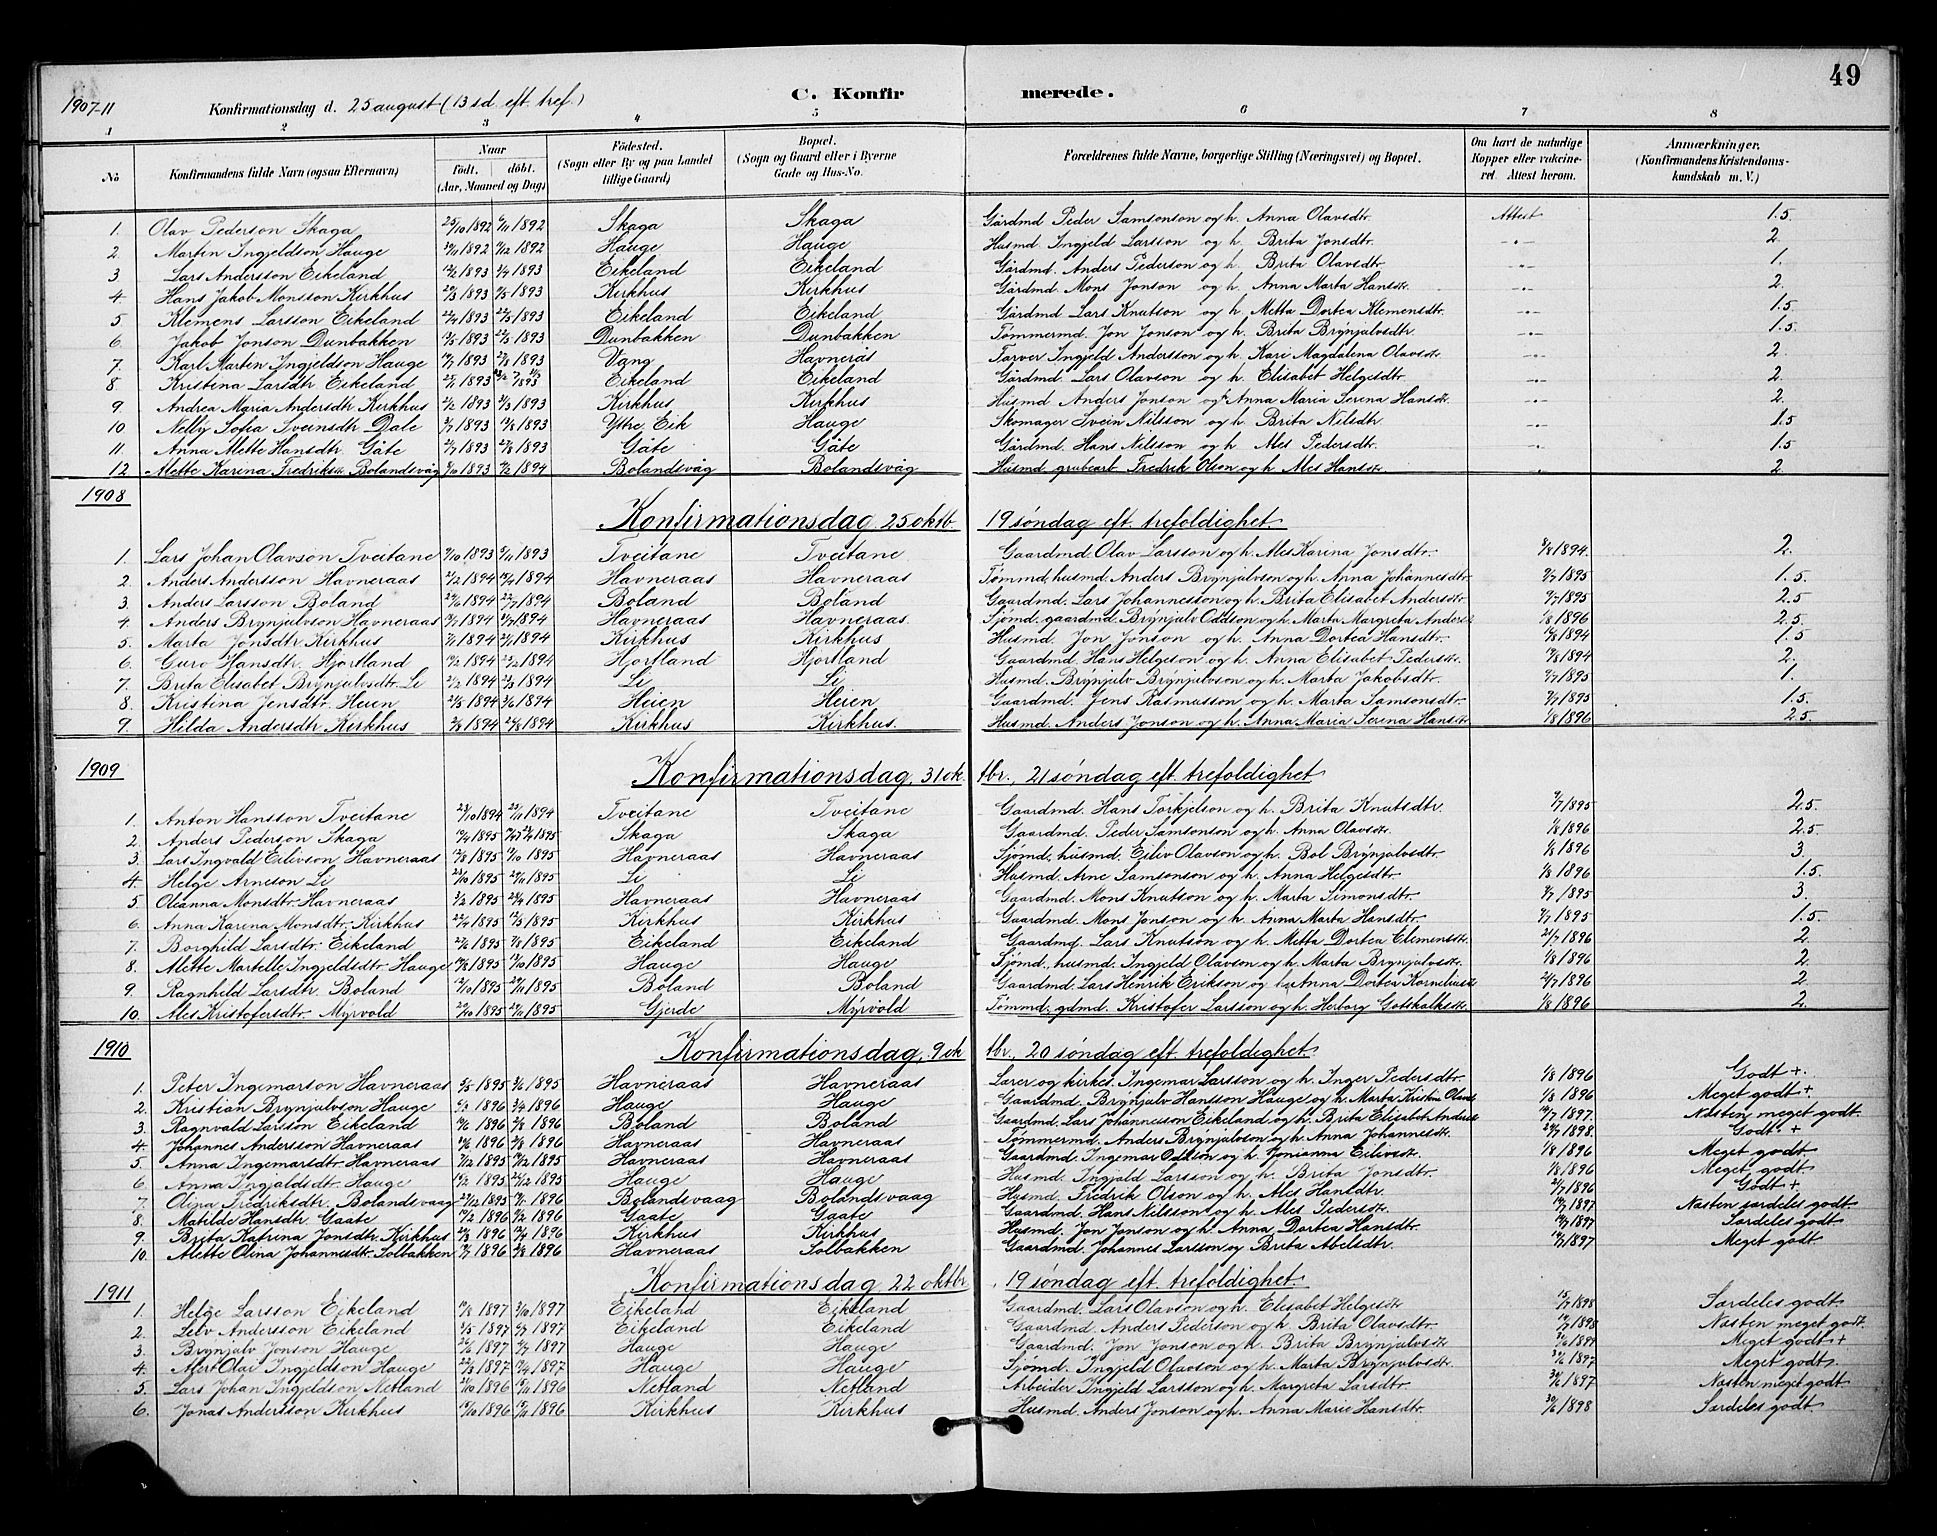 49
1907-11 Konfirmationsdag d. 25 august (13 s.d. eft. tref.) C. Konfirmerede.
1 2 3 4 5 6 7 8
No Konfirmandens fulde Navn (ogsaa Efternavn) Naar født. døbt. (Aar, Maaned og Dag) Fødested. (Sogn eller By og paa Landet tillige Gaard) Bopæl. (Sogn og Gaard eller i Byerne Gade og Hus-No. Forældrenes fulde Navne, borgerlige Stilling (Næringsvei) og Bopæl. Om havt de naturlige Kopper eller vakcineret. Attest herom. Anmærkninger. (Konfirmandens Kristendomskundskab m. V.)
1. Olav Pederson Skaga 25/10 1892 6/11 1892 Skaga Skaga Gårdmd Peder Samsonson og h. Anna Olavsdtr. Attest 1.5
2 Martin Ingjeldson Hauge 1892 1892 Hauge Hauge Husmd. Ingjeld Larsson og h. Brita Jonsdtr. -"- 2
3 Lars Andersson Eikeland 1893 1893 Eikeland Eikeland Gårdmd. Anders Pederson og h. Brita Olavsdtr. -"- 1.
4. Hans Jakob Monsson Kirkhus 1893 1893 Kirkhus Kirkhus Gårdmd. Mons Jonson og h. Anna Marta Hansdtr. -"- 2.
5 Klemens Larsson Eikeland 1893 1893 Eikeland Eikeland Gårdmd Lars Knutson og h. Metta Dortea Klemensdtr. -"- 1.5
6. Jakob Jonson Dunbakken 1893 1893 Dunbakken Dunbakken Tømmermd. Jon Jonson og h. Brita Brynjulvsdtr -"- 1.5.
7. Karl Martin Ingjeldson Hauge 1893 1893 Vang Havnerås Farver Ingjeld Andersson og h. Kari Magdalena Olavsdtr. -"- 2.
8. Kristina Larsdtr Eikeland 1893 1893 Eikeland Eikeland Gårdmd Lars Olavson og h. Elisabet Helgesdtr. -"- 2.
9. Andrea Maria Andersdtr Kirkhus 1893 1893 Kirkhus Kirkhus Husmd Anders Jonson og h. Anna Maria Serena Hansdtr. -"- 2.
10 Nelly Sofia Sveinsdtr Dale 1893 1893 Ytre Eik Hauge Skomager Svein Nilsson og h. Brita Nilsdtr -"- 1.5
11. Anna Mette Hansdtr Gåte 1893 1893 Gåte Gåte Gårdmd. Hans Nilsson og h. Ales Pedersdtr. -"- 1.5
12 Alette Karina Fredriksdtr. Bolandsvåg 1893 1894 Bolandsvåg Bolandsvåg Husmd grubearb. Fredrik Olson og h. Ales Hansdtr. 2
1908 Konfirmationsdag 25 oktb. 19 søndag eft. trefoldighet
1. Lars Johan Olavson Tveitane 1893 1893 Tveitane Tveitane Gaardmd. Olav Larsson og h. Ales Karina Jonsdtr. 1894. 2.
2. Anders Andersson Havneraas 1894 1894 Havneraas Havneraas Tømmd, husmd. Anders Brynjulvson og h. Anna Johannesdtr 1895 1.5.
3. Anders Larsson Boland 1894 1894 Boland Boland Gaardmd. Lars Johannesson og h. Brita Elisabet Andersdtr. 1895 2.5
4. Anders Brynjulvson Havneraas 1894 1894 Havneraas Havneraas. Sjømd. gaardmd. Brynjulv Oddson og h. Marta Margreta Andersdtr 1/8 1896 2.5.
5. Marta Jonsdtr Kirkhus 1894 1894 Kirkhus Kirkhus Husmd. Jon Jonson og h. Anna Dortea Hansdtr. 1894 1.5
6. Guro Hansdtr. Hjortland 1894 1894 Hjortland Hjortland Gaardmd. Hans Helgeson og h. Anna Elisabet Pedersdtr. 1894 2.
7. Brita Elisabet Brynjulvsdtr. Li 1894 1894 Li Li Husmd. Brynjulv Brynjulvson og h. Marta Jakobsdtr. 1895 1.
8 Kristina Jensdtr. Heien 1894 1894 Heien Heien Gaardmd. Jens Rasmusson og h. Marta Samsonsdtr. 1895 1.5.
9. Hilda Andersdtr Kirkhus 1894 1894 Kirkhus Kirkhus. Husmd. Anders Jonson og h. Anna Maria Serena Hansdtr 1/8 1896 2.5.
1909 Konfirmationsdag, 31 oktbr., 21 søndag eft. trefoldighet
1. Anton Hansson Tveitane 1894 1894 Tveitane Tveitane Gaardmd. Hans Torkjelson og h. Brita Knutsdtr. 1895 2.5.
2. Anders Pederson Skaga 1895 1895 Skaga Skaga Gaardmd. Peder Samsonson og h. Anna Olavsdtr. 1/8 1896 2.5
3. Lars Ingvald Eilivson Havneraas 1895 1895 Havneraas Havneraas Sjømd., husmd. Eiliv Olavson og h. Bol Brynjulvsdtr. 1/8 1896 3.
4. Helge Arneson Li 1895 1895 Li Li Husmd. Arne Samsonson og h. Anna Helgesdtr. 1/8 1896 1.5.
5 Olianna Monsdtr. Havneraas 1895 1895 Havneraas Havneraas Gaardmd. Mons Knutson og h. Marta Simonsdtr. 1895 3
6. Anna Karina Monsdtr. Kirkhus 1895 1895 Kirkhus Kirkhus Gaardmd. Mons Jonson og h. Anna Marta Hansdtr. 1895 1.5
7. Borghild Larsdtr. Eikeland 1895 1895 Eikeland Eikeland Gaardmd. Lars Knutson og h. Metta Dortea Clemensdtr. 1896 2.
8. Alette Martelle Ingjeldsdtr. Hauge 1895 1895 Hauge Hauge Sjømd., husmd. Ingjeld Olavson og h. Marta Brynjulvsdtr. 1/8 1896 2.
9. Ragnhild Larsdtr. Boland 1895 1895 Boland Boland Gaardmd. Lars Henrik Erikson og h. Anna Dortea Korneliusdtr 1896 2
10. Ales Kristofersdtr. Myrvold 1895 1895 Gjerde Myrvold Tømmd., gdmd. Kristofer Larsson og h. Herborg Gotskalksdtr. 1/8 1896 2.
1910 Konfirmationsdag, 9 oktbr., 20 søndag eft. trefoldighet.
1. Peter Ingemarson Havneraas 1895 1895 Havneraas Havneraas Lærer og kirkes. Ingemar Larsson og h. Inger Pedersdtr. 1/8 1896 Godt +.
2. Kristian Brynjulvson Hauge 1896 1896 Hauge Hauge Gaardmd. Brynjulv Hansson Hauge og h. Marta Kristina Olavsdtr 1/8 1896 Meget godt +
3. Ragnvald Larsson Eikeland 1896 1896 Boland Boland Gaardmd. Lars Johannesson Eikeland og h. Brita Elisabet Andersdtr 1897. Næsten meget godt.
4. Johannes Andersson Havneraas 1896 1896 Havneraas Havneraas Tømmermd. Anders Brynjulvson og h. Anna Johannesdtr. 1898. Godt +
5. Anna Ingemarsdtr. Havneraas 1895 1895 Havneraas Havneraas Gaardmd. Ingemar Oddson og h. Jonianna Eilivsdtr. 1/8 1896 Meget godt
6. Anna Ingjaldsdtr. Hauge 1895 1895 Hauge Hauge Husmd. Ingjald Larsson og h. Brita Jonsdtr. 1/8 1896 Meget godt
7. Olina Fredriksdtr. Bolandsvaag 1895 1896 Bolandsvaag Bolandsvaag Husmd. Fredrik Olson og h. Ales Hansdtr. 1896 Godt +
8. Matilde Hansdtr Gaate 1896 1896 Gaate Gaate Gaardmd. Hans Nilsson og h. Ales Pedersdtr. 1897 Næsten særdeles godt
9. Brita Katrina Jonsdtr. Kirkhus 1896 1896 Kirkhus Kirkhus Husmd. Jon Jonson og h. Anna Dortea Hansdtr. 1897 Særdeles godt
10. Alette Olina Johannesdtr. Solbakken 1896 1896 Havneraas Solbakken Gaardmd. Johannes Larsson og Brita Abelsdtr. 1897 Meget godt
1911 Konfirmationsdag 22 oktbr. 19 søndag eft. trefoldighet.
1. Helge Larsson Eikeland 1897 1897 Eikeland Eikeland Gaardmd. Lars Olavson og h. Elisabet Helgesdtr 1898 Særdeles godt.
2. Andersson Eikeland 1897 1897 Eikeland Eikeland Gaardmd. Anders Pederson og h. Brita Olavsdtr. 1898 Næsten meget godt.
3. Brynjulv Jonson Hauge 1897 1897 Hauge Hauge Gaardmd. Jon Jonson og h. Brita Brynjulvsdtr 1897 Meget godt +
4. Olai Ingjeldson Hauge 1897 1897 Hauge Hauge Sjømd. Ingjeld Olavson og h. Marta Brynjulvsdtr. 1897 Meget godt.
5. Lars Johan Ingjeldson Netland 1896 1896 Netland Netland Arbeider Ingjeld Larsson og h. Margreta Larsdtr. 1897 Næsten meget godt
6. Jonas Andersson Kirkhus 1896 1896 Kirkhus Kirkhus Husmd. Anders Jonson og h. Anna Marie Hansdtr. 1898 Særdeles godt.